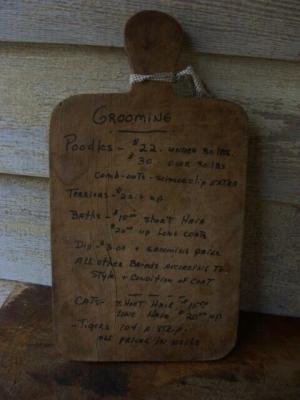 GROOMING
Poodles - $22. UNDER 30 lbs.
$30 OVER 30 lbs
COMb-outs - SCISSOR clip EXTRA
TERRIERS - $22. + up.
Baths - $15.00 SHORT HAIR
$20.00 up LONG COATS
Dip - $3.00 + GROOMING PRICE
ALL OTHER BREEDS ACCORDING TO
STYLE + CONDITION OF COAT
CATS - SHORT HAIR $15.00
LONG HAIR $20.00 up.
- TIGERS 10¢ A STRIP -
ALL PRICES IN